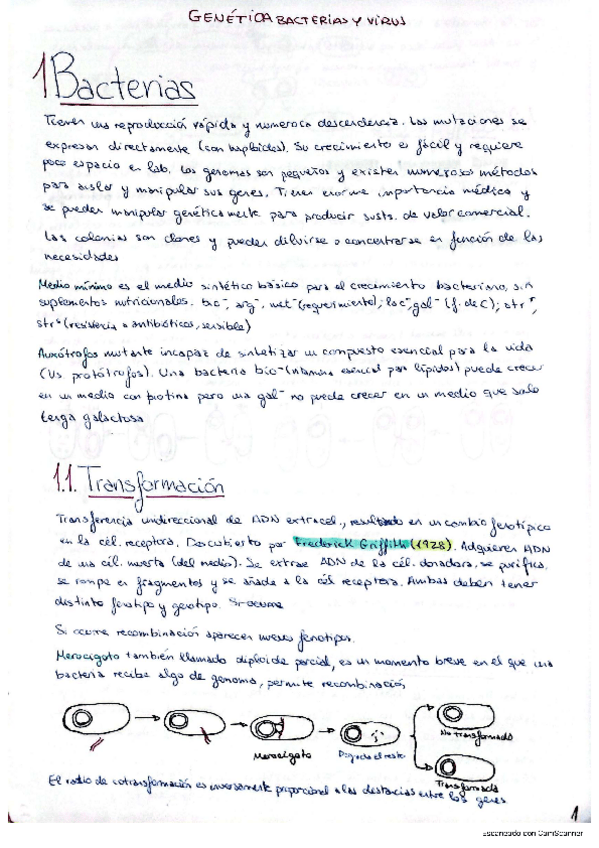 GENÉTICA BACTERIAS Y VIRUS
1 Bacterias
Tienen una reproducción rápida y numerosa descendencia. Las mutaciones se
expresan directamente (son haploides). Su crecimiento es fácil y requiere
poco espacio en lab. Los genomas son pequeños y existen numerosos métodos
para aislar y manipular sus genes. Tienen enorme importancia médica y
se pueden manipular genéticamente para producir susts. de valor comercial.
Las colonias son clones y pueden diluirse o concentrarse en función de las
necesidades
Medio mínimo es el medio sintético básico para el crecimiento bacteriano, sin
suplementos nutricionales. arg⁻, met⁻ (requerimiento); lac⁻, gal⁻ (f. de C); str ʳ,
strˢ (resistencia a antibióticos, sensible)
Auxótrofos mutante incapaz de sintetizar un compuesto esencial para la vida
(Vs. protótrofos). Una bacteria bio⁻ (vitamina esencial para lípidos) puede crecer
en un medio con biotina pero una gal⁻ no puede crecer en un medio que solo
tenga galactosa
1.1. Transformación
Transferencia unidireccional de ADN extracel., resultando en un cambio fenotípico
en la cél. receptora. Descubierto por Frederick Griffith (1928). Adquieren ADN
de una cél. muerta (del medio). Se extrae ADN de la cél. donadora, se purifica,
se rompe en fragmentos y se añade a la cél receptora. Ambas deben tener
distinto fenotipo y genotipo.
Si ocurre recombinación aparecen nuevos fenotipos.
Merocigoto también llamado diploide parcial, es un momento breve en el que una
bacteria recibe algo de genoma, permite recombinación
Merocigoto
Degrada el resto
No transformada
Transformada
El radio de cotransformación es inversamente proporcional a las distancias entre los genes
1
Escaneado con CamScanner